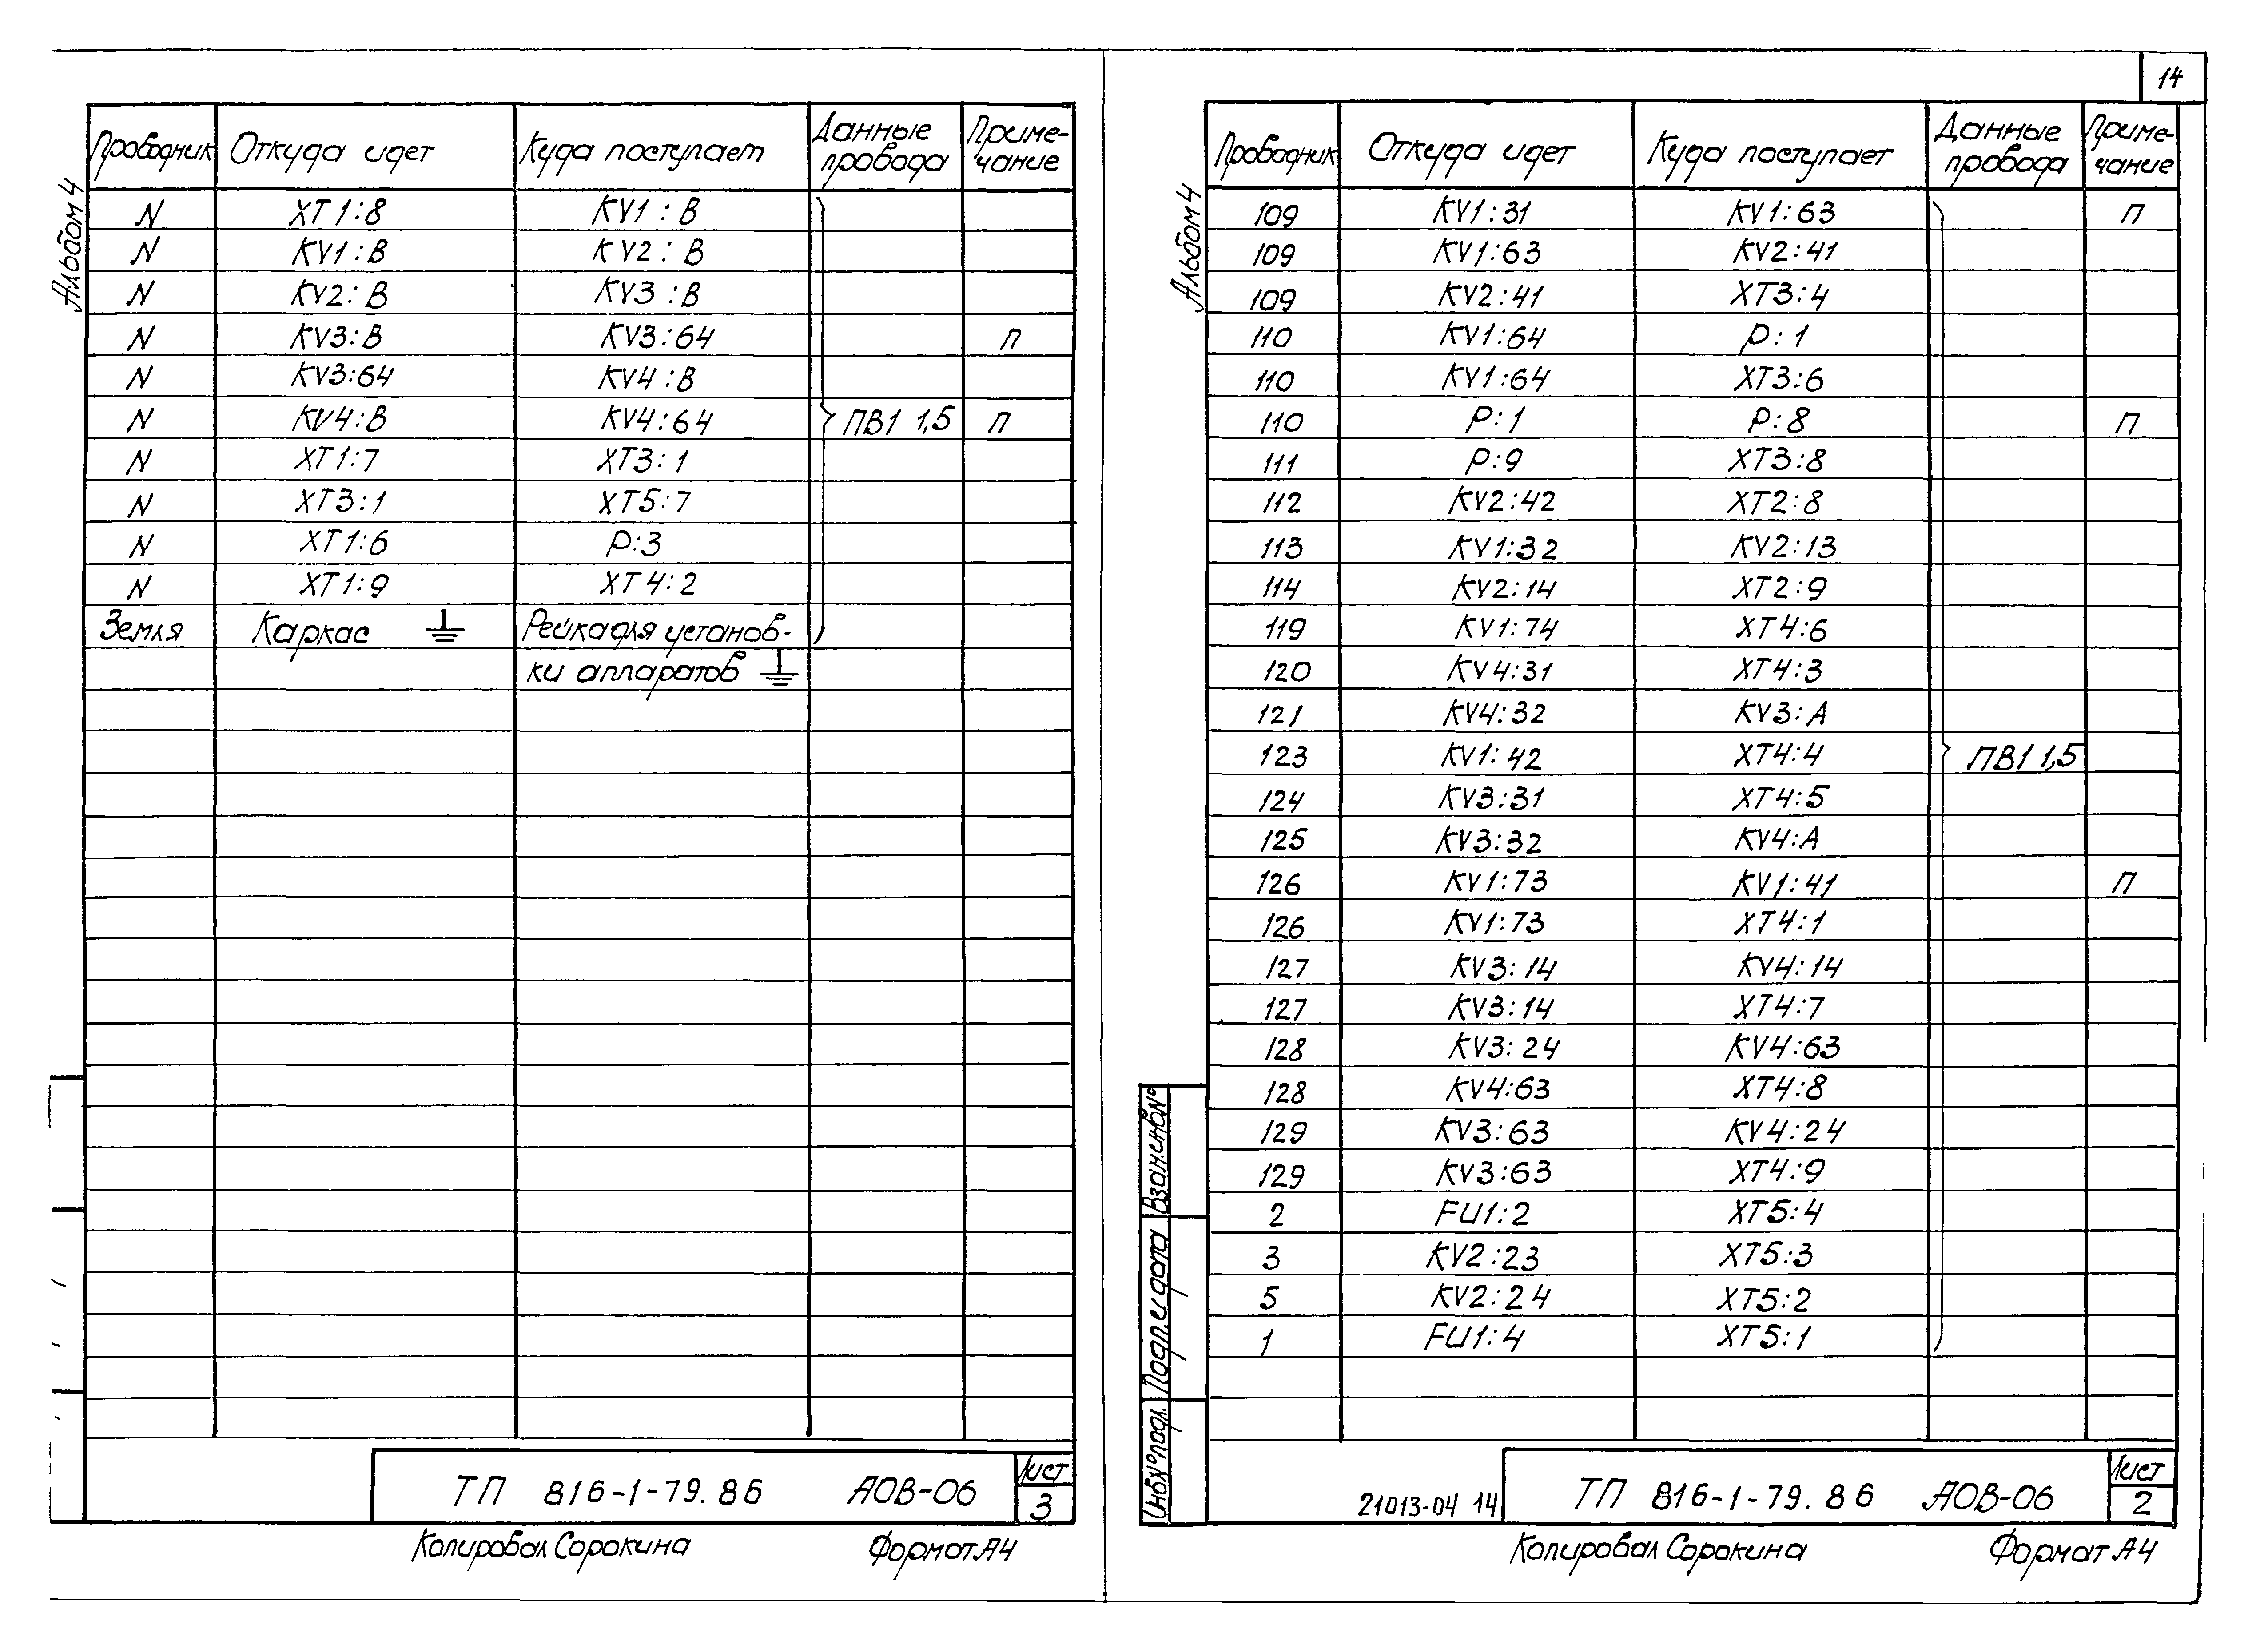 14
Альбом 4
Проводник Откуда идет Куда поступает Данные провода Приме-чание
N XT1:8 KV1:B
N KV1:B KV2:B
N KV2:B KV3:B
N KV3:B KV3:64 П
N KV3:64 KV4:B
N KV4:B KV4:64 ПВ1 1,5 П
N XT1:7 XT3:1
N XT3:1 XT5:7
N XT1:6 P:3
N XT1:9 XT4:2
Земля Каркас Рейка для установ-
ки аппаратов
ТП 816-1-79.86 АОВ-06 Лист 3
Копировал Сорокина Формат А4
Альбом 4
Проводник Откуда идет Куда поступает Данные провода Приме-чание
109 KV1:31 KV1:63 П
109 KV1:63 KV2:41
109 KV2:41 XT3:4
110 KV1:64 P:1
110 KV1:64 XT3:6
110 P:1 P:8 П
111 P:9 XT3:8
112 KV2:42 XT2:8
113 KV1:32 KV2:13
114 KV2:14 XT2:9
119 KV1:74 XT4:6
120 KV4:31 XT4:3
121 KV4:32 KV3:A
123 KV1:42 XT4:4 ПВ1 1,5
124 KV3:31 XT4:5
125 KV3:32 KV4:A
126 KV1:73 KV1:41 П
126 KV1:73 XT4:1
127 KV3:14 KV4:14
127 KV3:14 XT4:7
128 KV3:24 KV4:63
128 KV4:63 XT4:8
129 KV3:63 KV4:24
129 KV3:63 XT4:9
2 FU1:2 XT5:4
3 KV2:23 XT5:3
5 KV2:24 XT5:2
1 FU1:4 XT5:1
Взам.инв№
Подп.и дата
Инв№подл.
21013-04 14
ТП 816-1-79.86 АОВ-06 Лист 2
Копировал Сорокина Формат А4